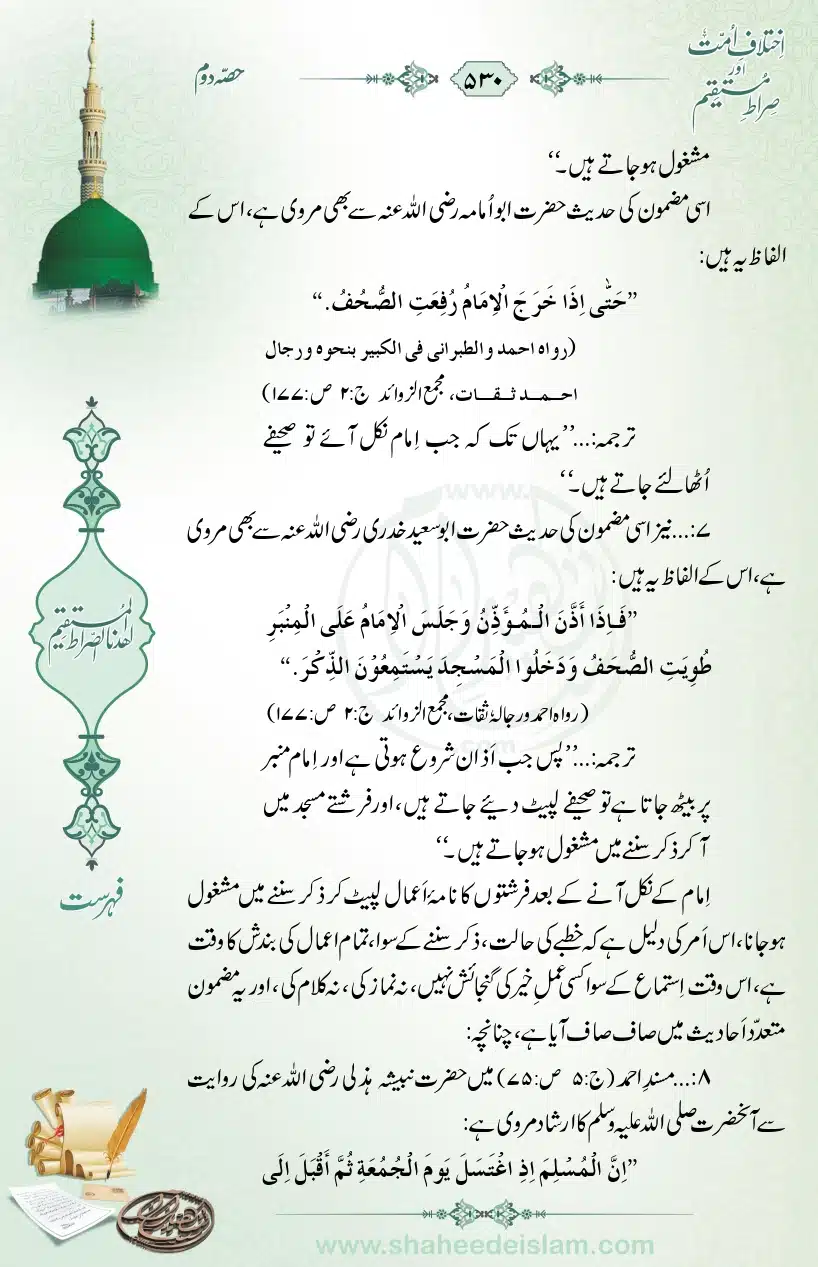 اِختلافِ اُمّت
اور
صِراطِ مُستقیم
۵۳۰
حصّہ دوم
مشغول ہوجاتے ہیں۔‘‘
اسی مضمون کی حدیث حضرت ابواُمامہ رضی اللہ عنہ سے بھی مروی ہے، اس کے
الفاظ یہ ہیں:
”حَتّٰی اِذَا خَرَجَ الْاِمَامُ رُفِعَتِ الصُّحُفُ.“
(رواہ احمد والطبرانی فی الکبیر بنحوہ ورجال
احمد ثقات، مجمع الزوائد ج:۲ ص:۱۷۷)
ترجمہ:...’’یہاں تک کہ جب اِمام نکل آئے تو صحیفے
اُٹھالئے جاتے ہیں۔‘‘
۷:...نیز اسی مضمون کی حدیث حضرت ابوسعید خدری رضی اللہ عنہ سے بھی مروی
ہے، اس کے الفاظ یہ ہیں:
”فَاِذَا أَذَّنَ الْمُؤَذِّنُ وَجَلَسَ الْاِمَامُ عَلَی الْمِنْبَرِ
طُوِیَتِ الصُّحَفُ وَدَخَلُوا الْمَسْجِدَ یَسْتَمِعُوْنَ الذِّکْرَ.“
(رواہ احمد ورجالہٗ ثقات، مجمع الزوائد ج:۲ ص:۱۷۷)
ترجمہ:...’’پس جب اَذان شروع ہوتی ہے اور اِمام منبر
پر بیٹھ جاتا ہے تو صحیفے لپیٹ دیئے جاتے ہیں، اور فرشتے مسجد میں
آکر ذکر سننے میں مشغول ہوجاتے ہیں۔‘‘
اِمام کے نکل آنے کے بعد فرشتوں کا نامۂ اَعمال لپیٹ کر ذکر سننے میں مشغول
ہوجانا، اس اَمر کی دلیل ہے کہ خطبے کی حالت، ذکر سننے کے سوا، تمام اعمال کی بندش کا وقت
ہے، اس وقت اِستماع کے سوا کسی عملِ خیر کی گنجائش نہیں، نہ نماز کی، نہ کلام کی، اور یہ مضمون
متعدّد اَحادیث میں صاف صاف آیا ہے، چنانچہ:
۸:...مسندِ احمد (ج:۵ ص:۷۵) میں حضرت نبیشہ ہذلی رضی اللہ عنہ کی روایت
سے آنحضرت صلی اللہ علیہ وسلم کا ارشاد مروی ہے:
”اِنَّ الْمُسْلِمَ اِذِ اغْتَسَلَ یَومَ الْجُمُعَةِ ثُمَّ أَقْبَلَ اِلَی
اهدنا الصراط المستقیم
فہرست
www.shaheedeislam.com